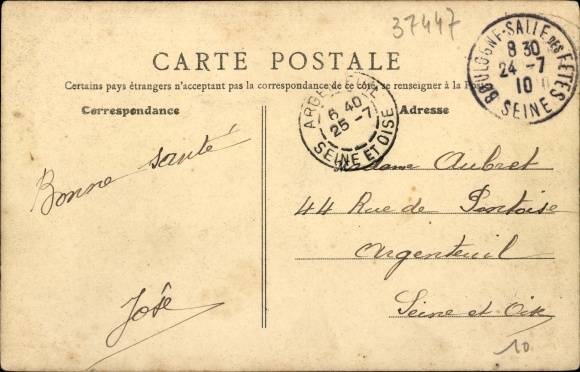 37447
CARTE POSTALE
Certains pays étrangers n'acceptant pas la correspondance de ce côté, se renseigner à la Poste
Correspondance
Adresse
BOULOGNE-SALLE DES FÊTES
8 30
24 -7
10
SEINE
ARGENTEUIL
6 40
25 -7
SEINE ET OISE
Bonne santé
José
Madame Aubret
44 Rue de Pontoise
Argenteuil
Seine et Oise
10